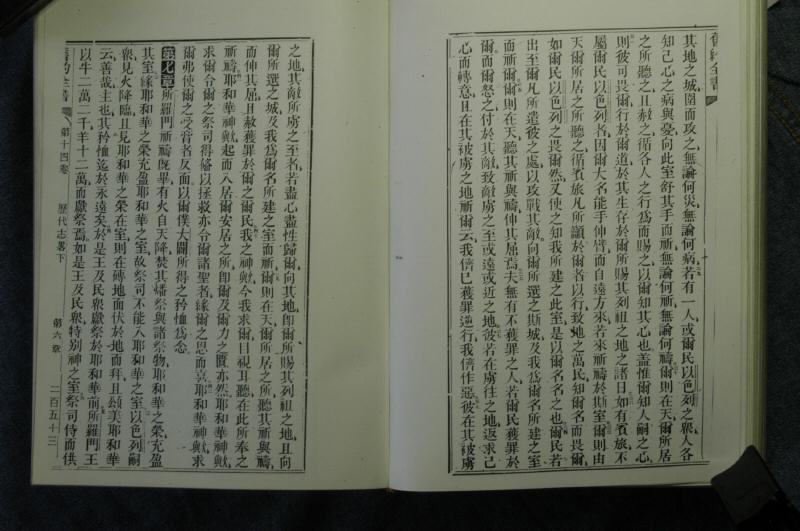 舊約全書
其地之城圍而攻之無論何災無論何病若有一人或爾民以色列之衆人各
知己心之病與憂向此室舒其手而祈無論何祈無論何禱爾則在天爾所居
之所聽之且赦之循各人之行爲而賜之以爾知其心也蓋惟爾知人嗣之心
則彼可畏爾行於爾道於其生存於爾所賜其列祖之地之諸日如有賓旅不
屬爾民以色列者因爾大名能手伸臂而自遠方來若來祈禱於斯室爾則由
天爾所居之所聽之循賓旅凡所籲於爾者以行致地之萬民知爾名而畏爾
如爾民以色列之畏爾然又使之知我所建之此室是以爾名名之也爾民若
出至爾凡所遣彼之處以攻戰其敵向爾所選之斯城及我爲爾名所建之室
而祈爾爾則在天聽其祈與禱伸其屈焉夫無有不獲罪之人若爾民獲罪於
爾而爾怒之付於其敵致敵虜之至或遠或近之地彼若在虜往之地返求己
心而轉意且在其被虜之地祈爾云我儕已獲罪逆行我儕作惡彼在其被虜
之地其敵所虜之至者若盡心盡性歸爾向其地即爾所賜其列祖之地且向
爾所選之城及我爲爾名所建之室而祈爾爾則在天爾所居之所聽其祈與禱
而伸其屈且赦獲罪於爾之爾民我之神歟今我求爾目視耳聽在此所奉之
祈禱耶和華神歟起而入居爾安居之所即爾及爾力之匱亦然耶和華神歟
求爾令爾之祭司得修以拯救亦令爾諸聖者緣爾之恩而喜耶和華神歟求
爾弗使爾之受膏者反面以爾僕大闢所得之矜恤爲念
第七章所羅門祈禱既畢有火自天降焚其燔祭與諸祭物耶和華之榮充盈
其室緣耶和華之榮充盈耶和華之室故祭司不能入耶和華之室以色列嗣
衆見火降臨且見耶和華之榮在室則在磚地面伏於地而拜且頌美耶和華
云善哉主也其矜恤迄於永遠矣於是王及民衆獻祭於耶和華前所羅門王
以牛二萬二千羊十二萬而獻祭焉如是王及民衆特别神之室祭司侍而供
舊約全書 第十四卷 歷代志畧下 第六章 二百五十三